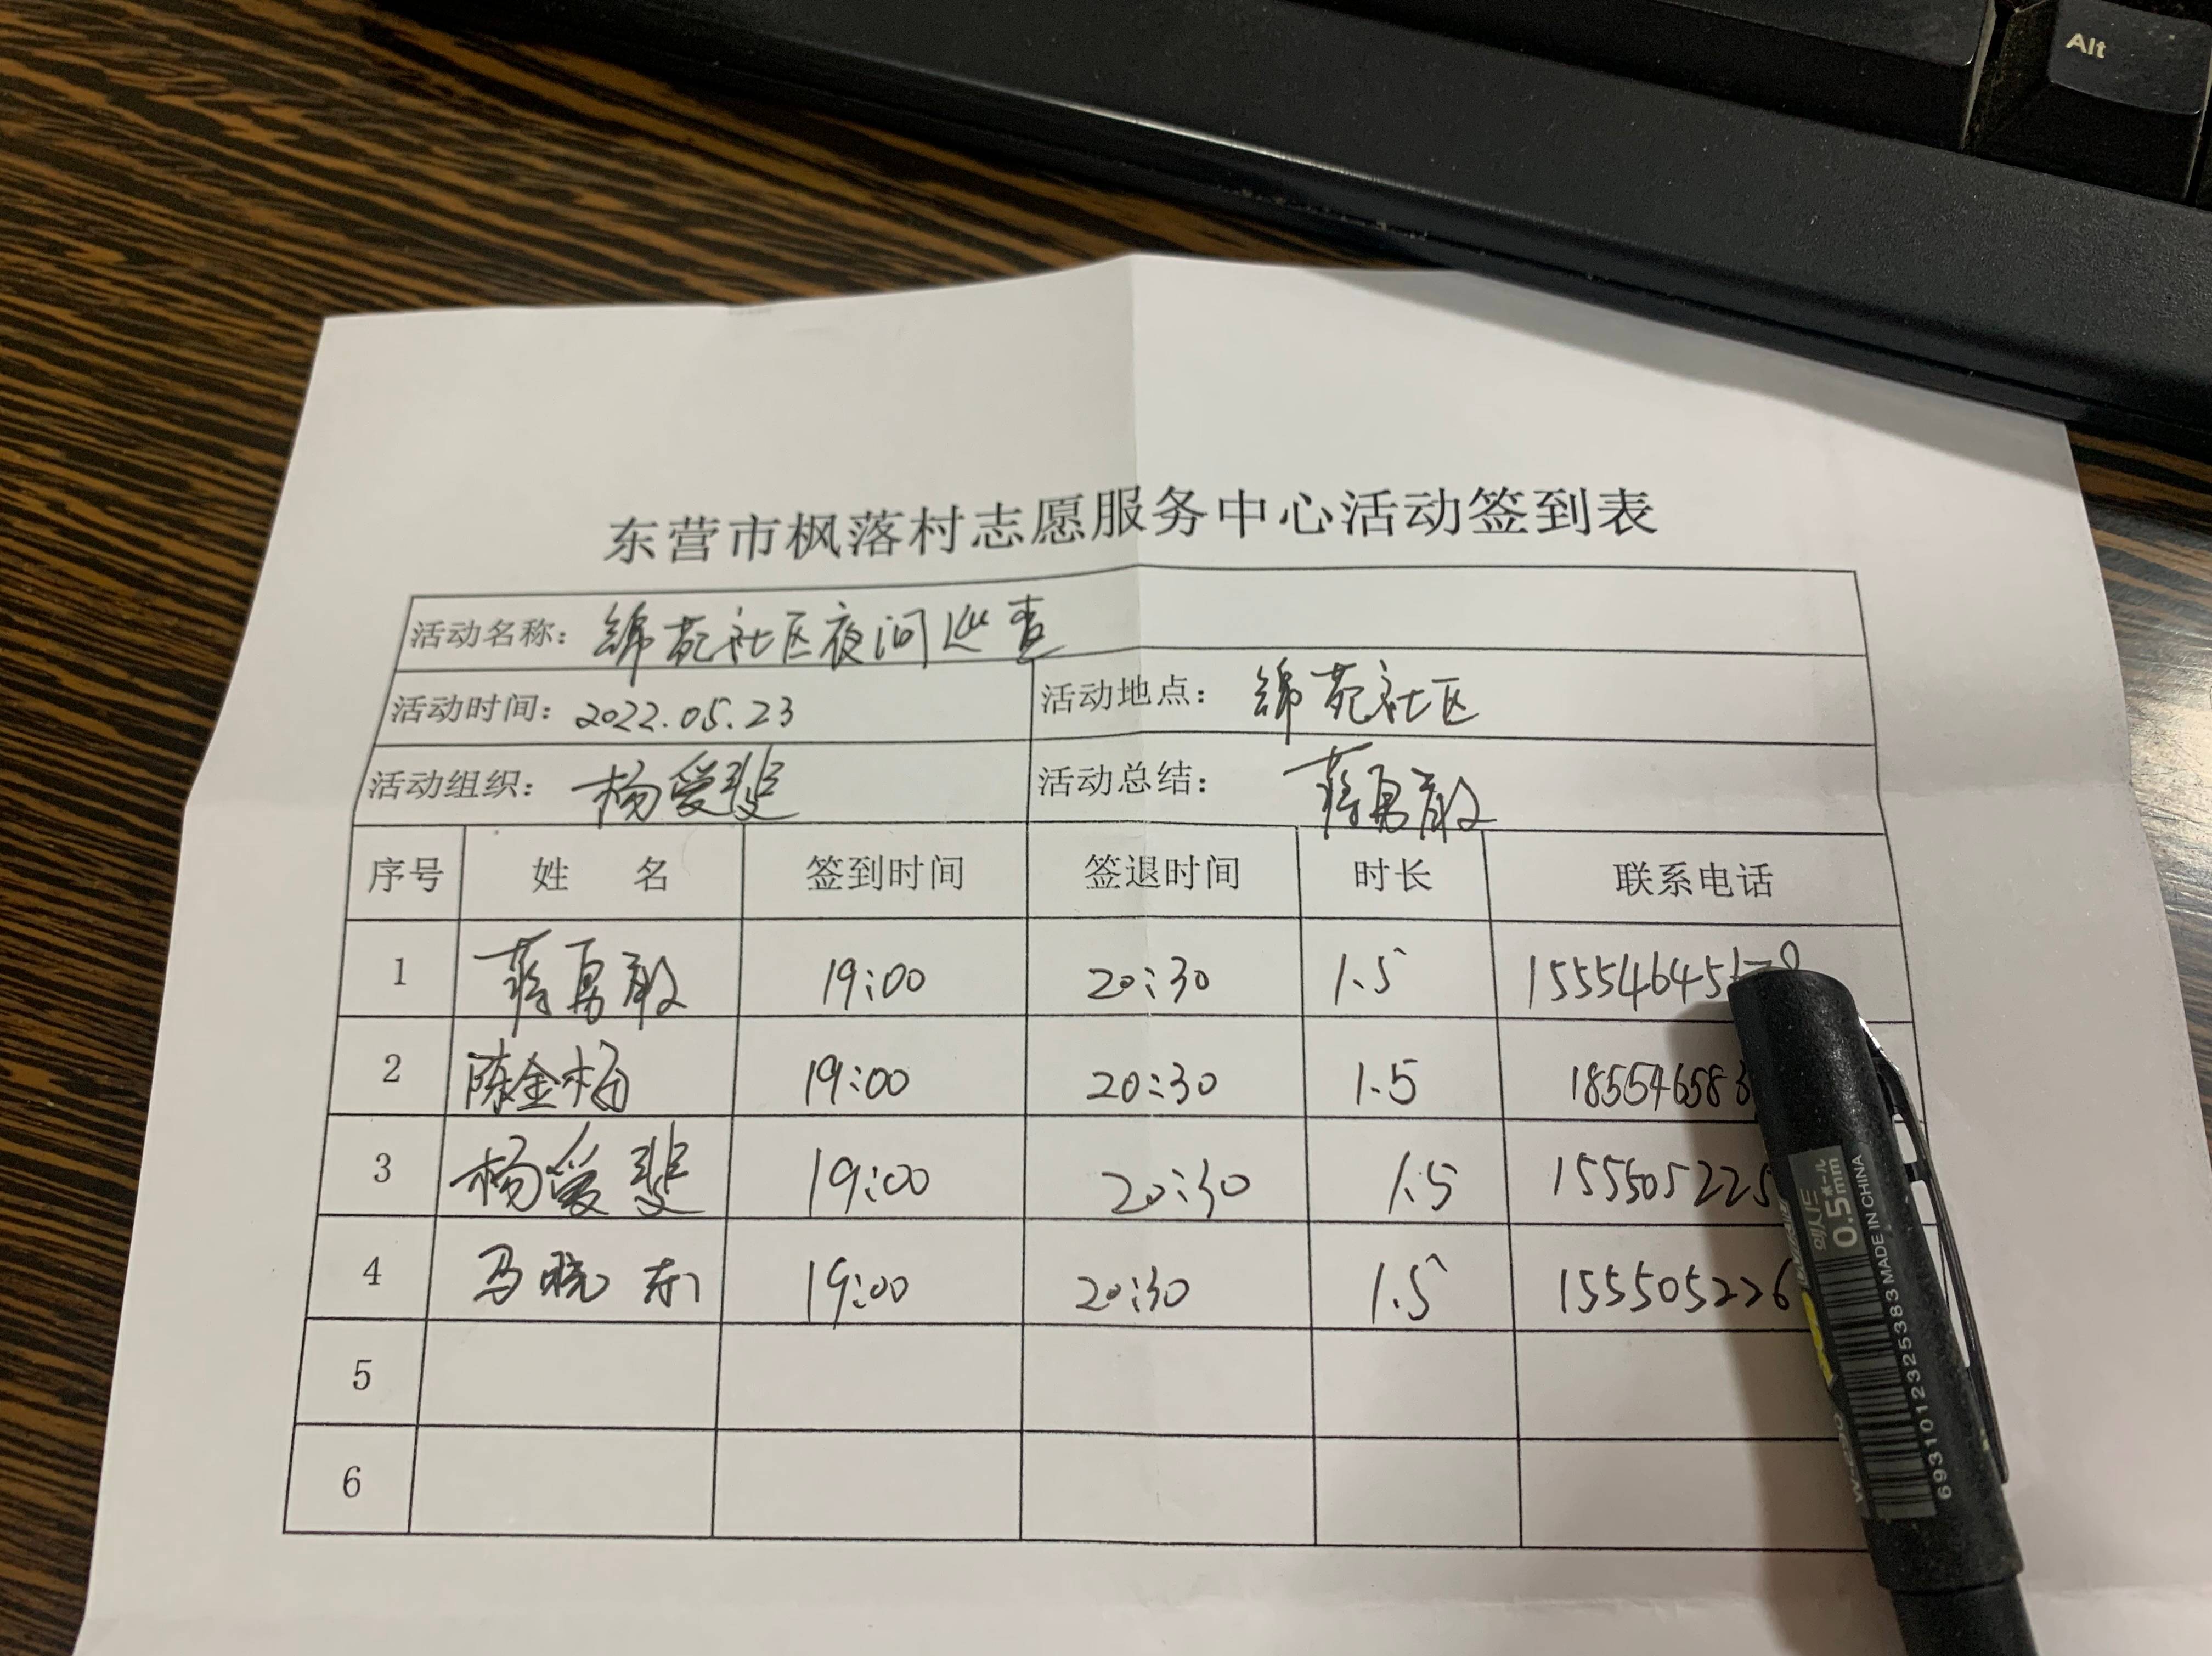 Alt
东营市枫落村志愿服务中心活动签到表
活动名称: 锦苑社区夜间巡查
活动时间: 2022.05.23 活动地点: 锦苑社区
活动组织: 杨爱斐 活动总结: 蒋勇敢
序号 姓 名 签到时间 签退时间 时长 联系电话
1 蒋勇敢 19:00 20:30 1.5 155546455
2 陈金梅 19:00 20:30 1.5 185546583
3 杨爱斐 19:00 20:30 1.5 155505225
4 马晓东 19:00 20:30 1.5 155505226
5
6
0.5mm
MADE IN CHINA
6931012325383